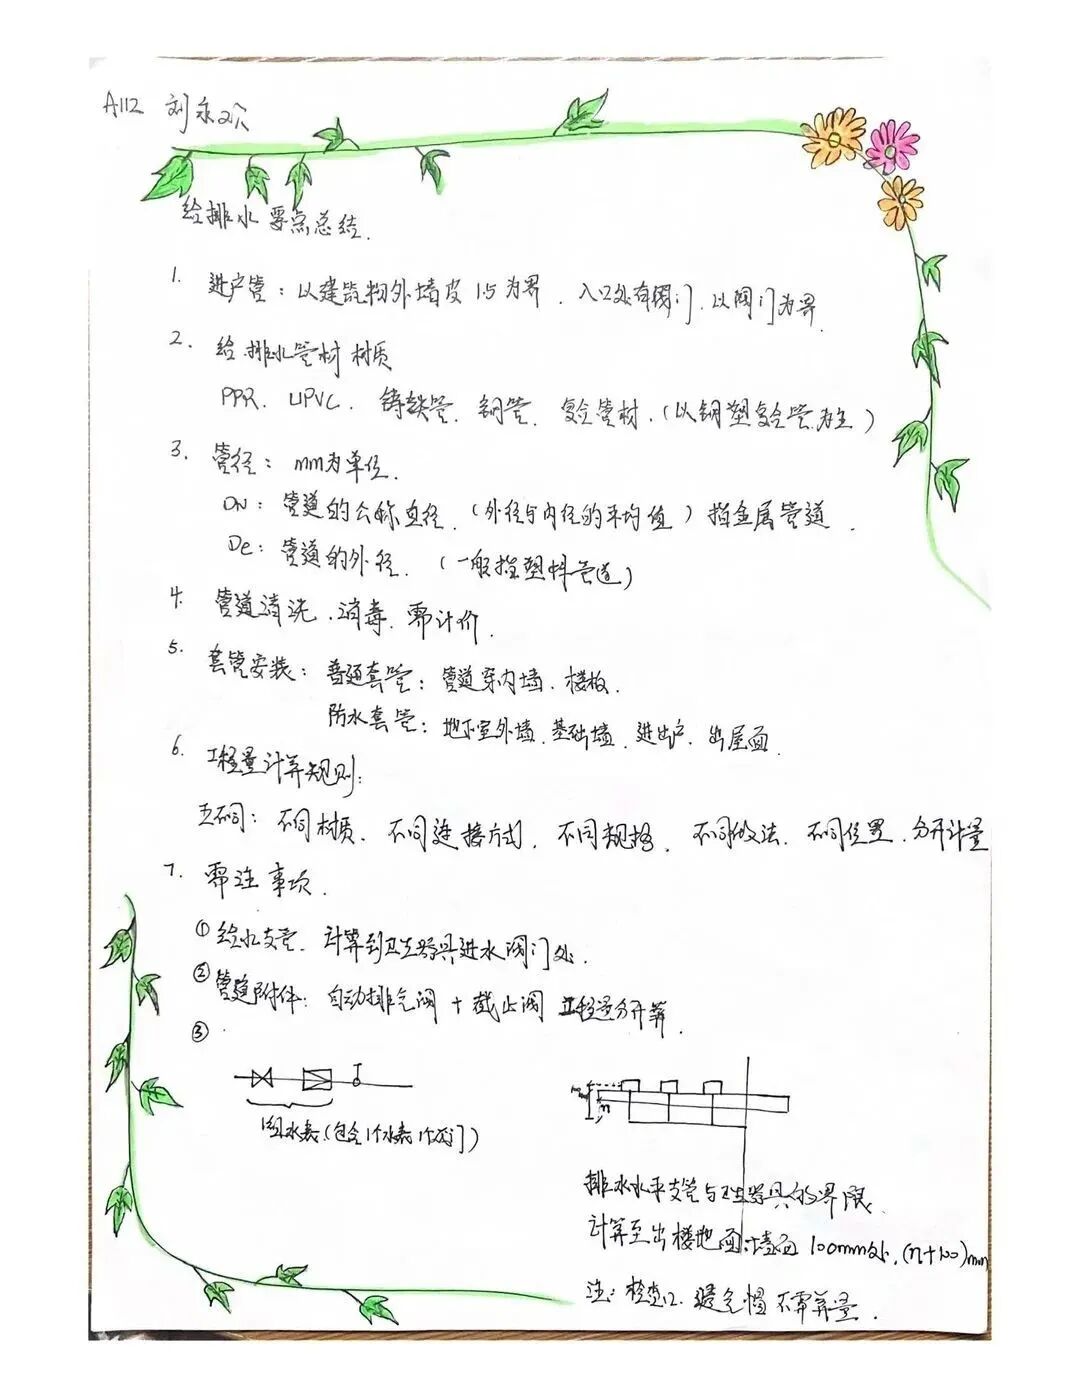 A112 刘永欢
给排水要点总结.
1. 进户管：以建筑物外墙皮1.5为界．入口处有阀门，以阀门为界．
2. 给．排水管材 材质
PPR、UPVC、铸铁管、钢管、复合管材．(以钢塑复合管为主)
3. 管径：mm为单位．
DN：管道的公称直径．(外径与内径的平均值)指金属管道．
De：管道的外径．(一般指塑料管道)
4. 管道清洗．消毒．需计价．
5. 套管安装：普通套管：管道穿内墙、楼板．
防水套管：地下室外墙、基础墙、进出户、出屋面．
6. 工程量计算规则：
五不同：不同材质、不同连接方式、不同规格、不同做法、不同位置．分开计量
7. 需注事项．
① 给水支管．计算到卫生器具进水阀门处．
② 管道附件：自动排气阀+截止阀 工程量分开算．
③
1组水表(包含1个水表1个阀门)
n
排水水平支管与卫生器具的界限．
计算至出楼地面、墙面100mm处．(n+100)mm
注：检查口、透气帽不需算量．